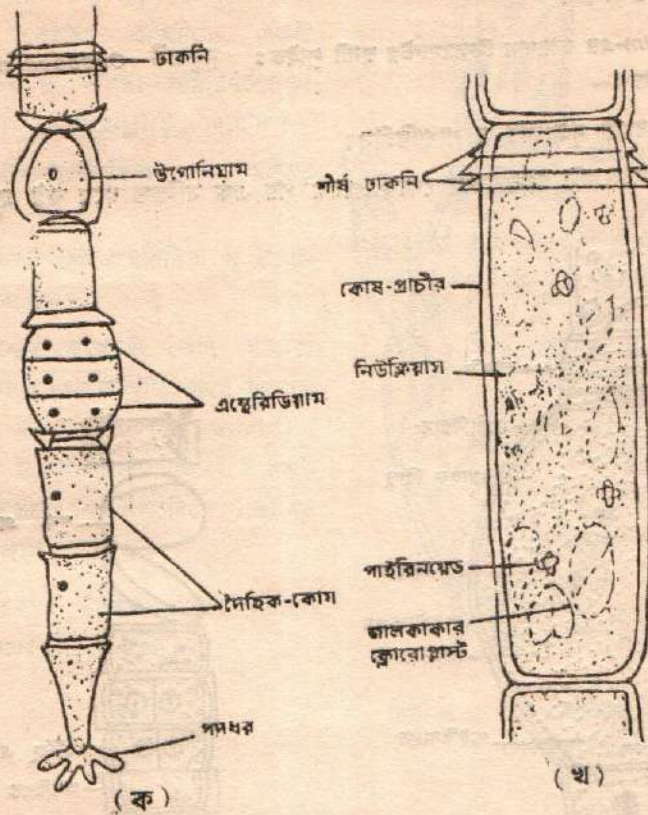 ঢাকনি
উগোনিয়াম
এন্থেরিডিয়াম
দৈহিক-কোষ
পদধর
(ক)
শীর্ষ ঢাকনি
কোষ-প্রাচীর
নিউক্লিয়াস
পাইরিনয়েড
জালকাকার
ক্লোরোপ্লাস্ট
(খ)